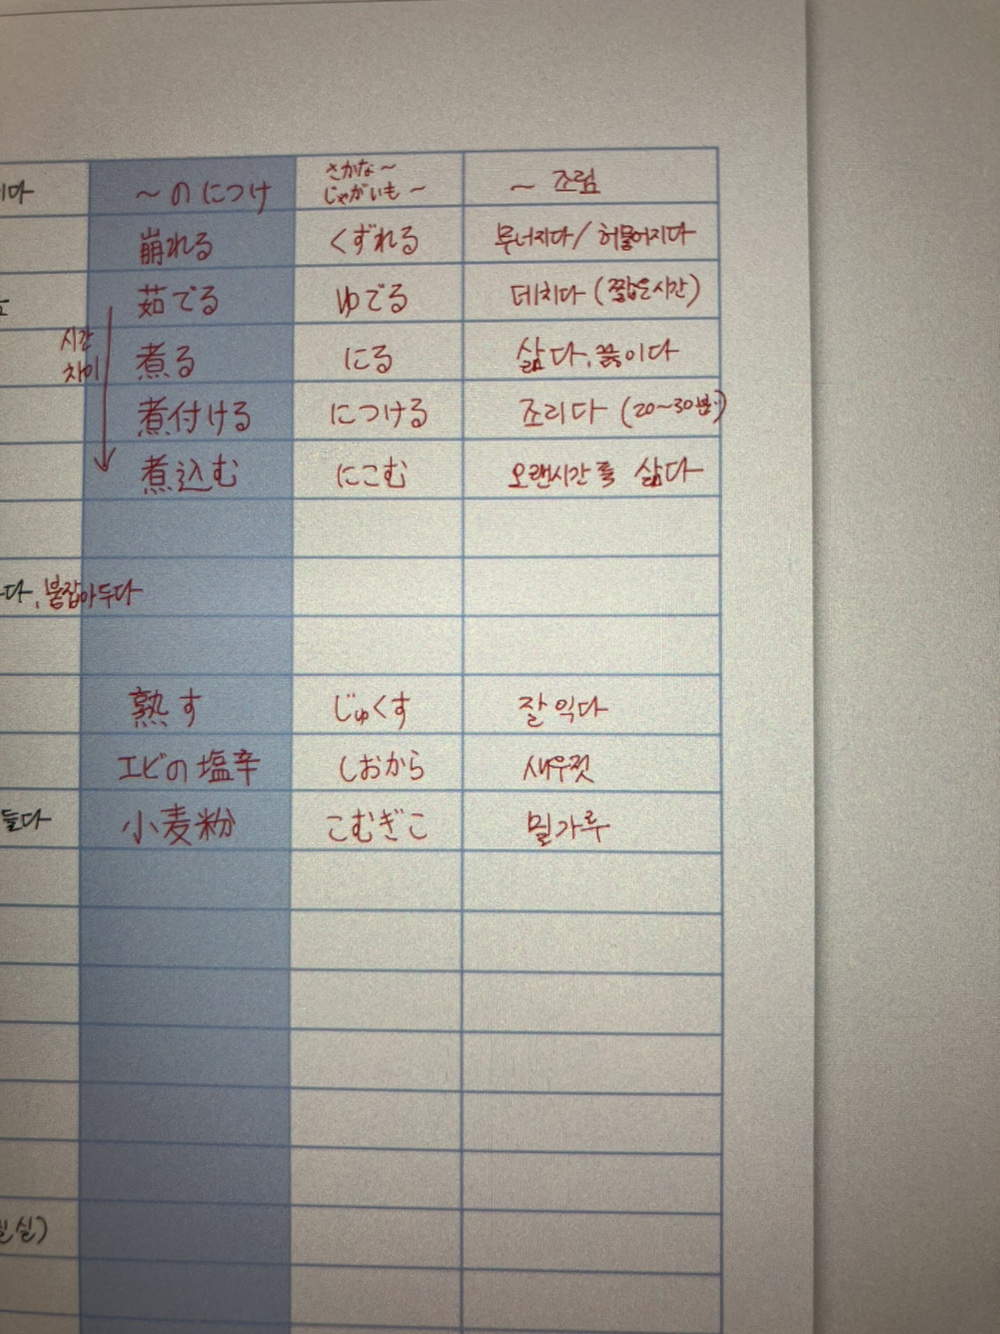 이다 ~のにつけ さかな~ ~ 조림
じゃがいも~
崩れる くずれる 무너지다/허물어지다
茹でる ゆでる 데치다 (짧은시간)
시간
차이
煮る にる 삶다, 끓이다
煮付ける につける 조리다 (20~30분)
煮込む にこむ 오랜시간 푹 삶다
다, 붙잡아두다
熟す じゅくす 잘 익다
エビの塩辛 しおから 새우젓
들다 小麦粉 こむぎこ 밀가루
실)